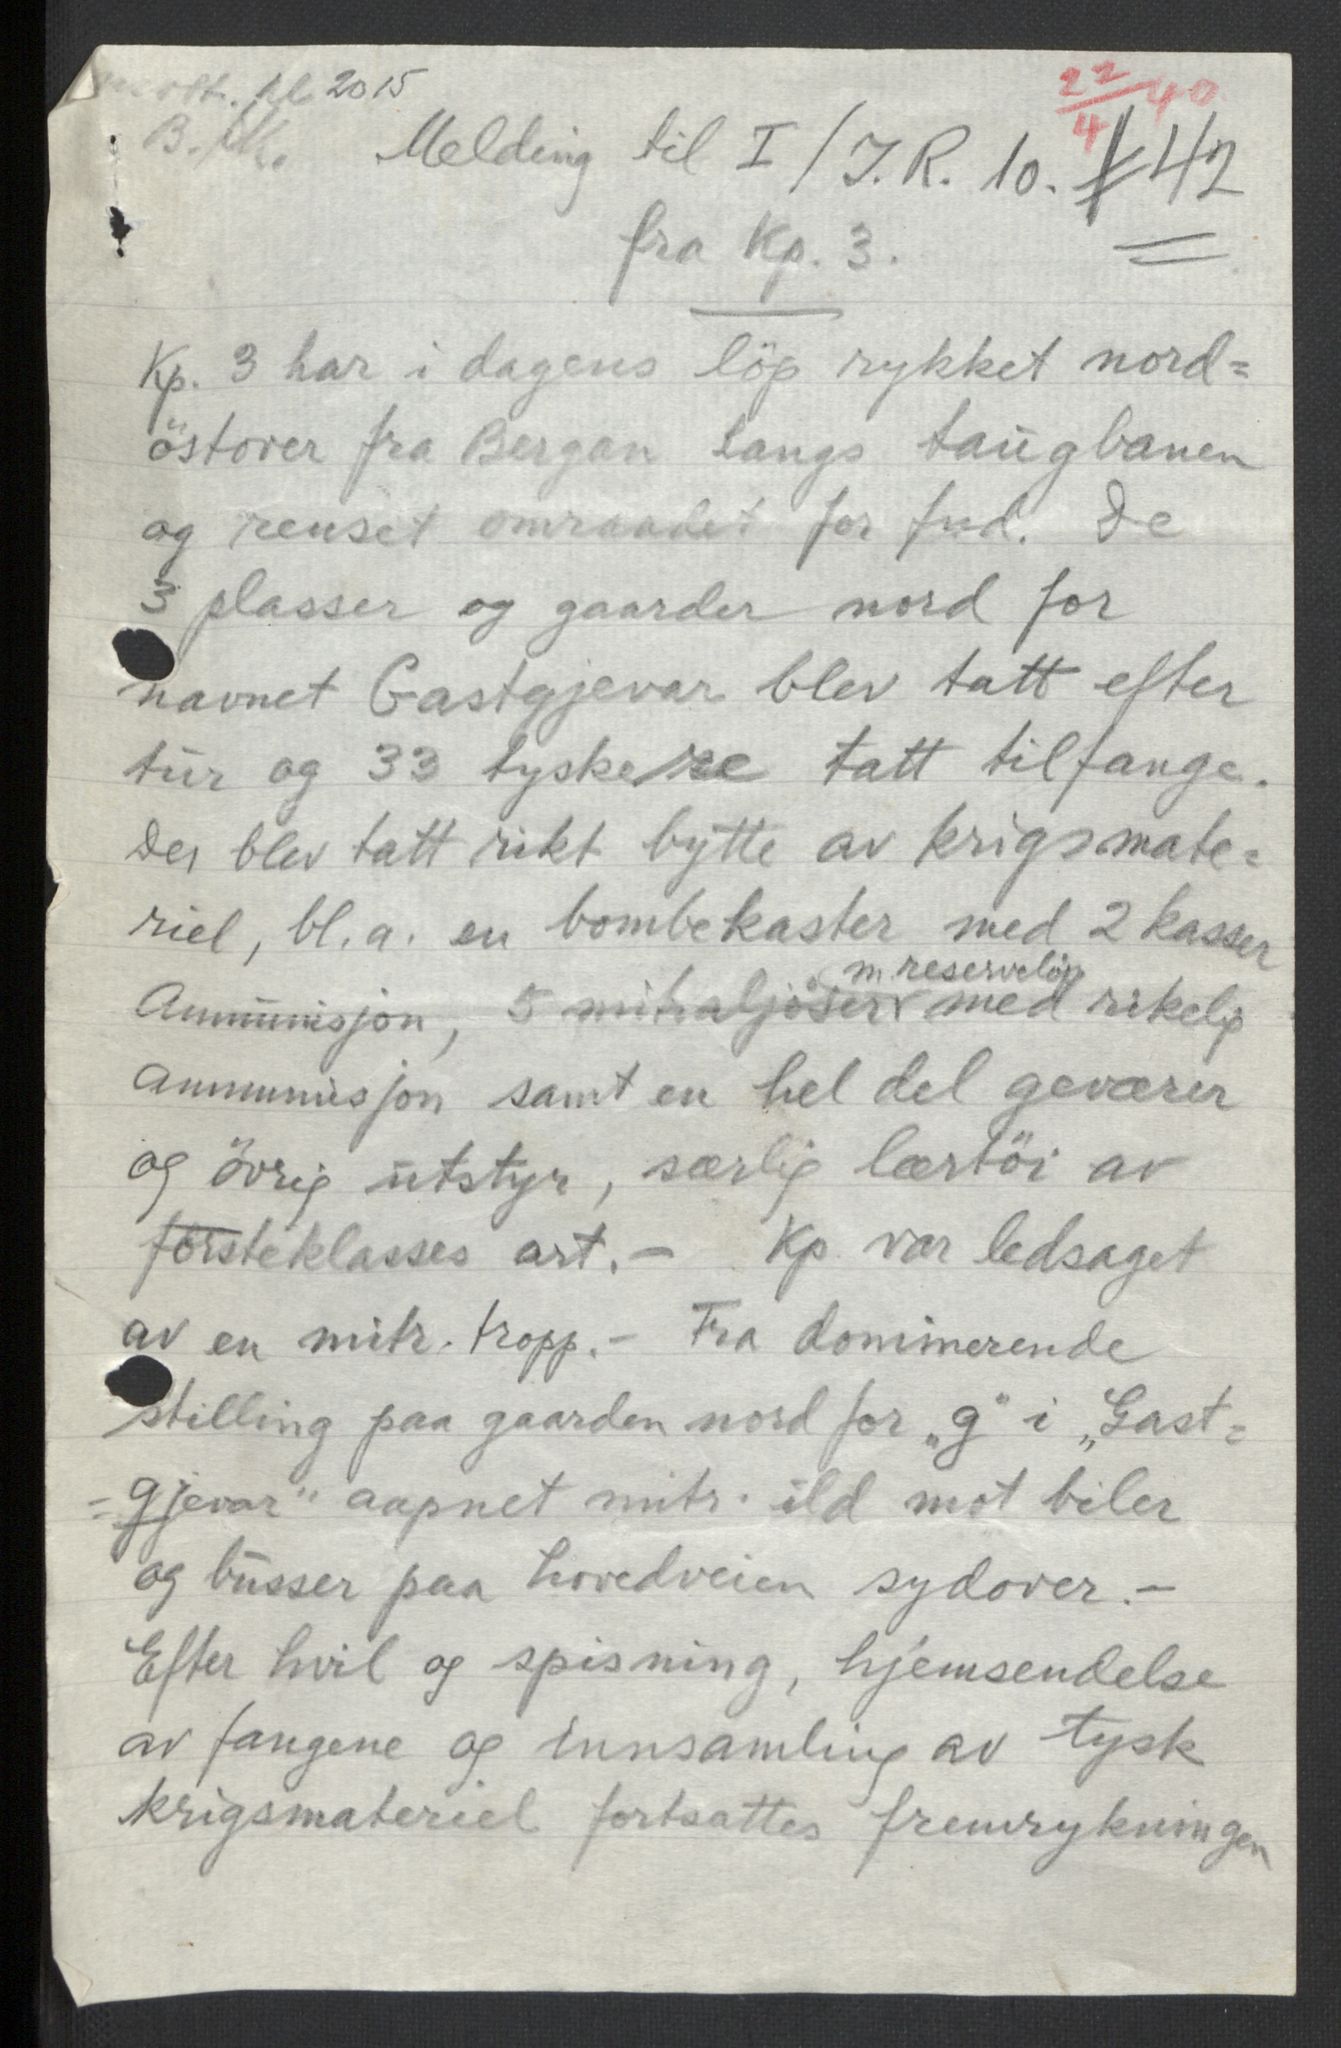 kl. 2015
22/4 40
B. M.
Melding til I/J.R. 10. 42
fra Kp. 3.
Kp. 3 har i dagens löp rykket nord=
östover fra Bergan langs taugbanen
og renset omraadet for fnd. De
3 plasser og gaarder nord for
navnet Gastgjevar blev tatt efter
tur og 33 tyskere tatt tilfange.
Der blev tatt rikt bytte av krigsmate=
riel, bl.a. en bombekaster med 2 kasser
m. reservelöp
Ammunisjon, 5 mitraljöser med rikelig
ammunisjon samt en hel del geværer
og övrig utstyr, særlig lærtöi av
försteklasses art. – Kp var ledsaget
av en mitr. tropp. – Fra dominerende
stilling paa gaarden nord for „g" i „Gast=
=gjevar" aapnet mitr. ild mot biler
og busser paa hovedveien sydover. –
Efter hvil og spisning, hjemsendelse
av fangene og innsamling av tysk
krigsmateriel fortsattes fremrykningen